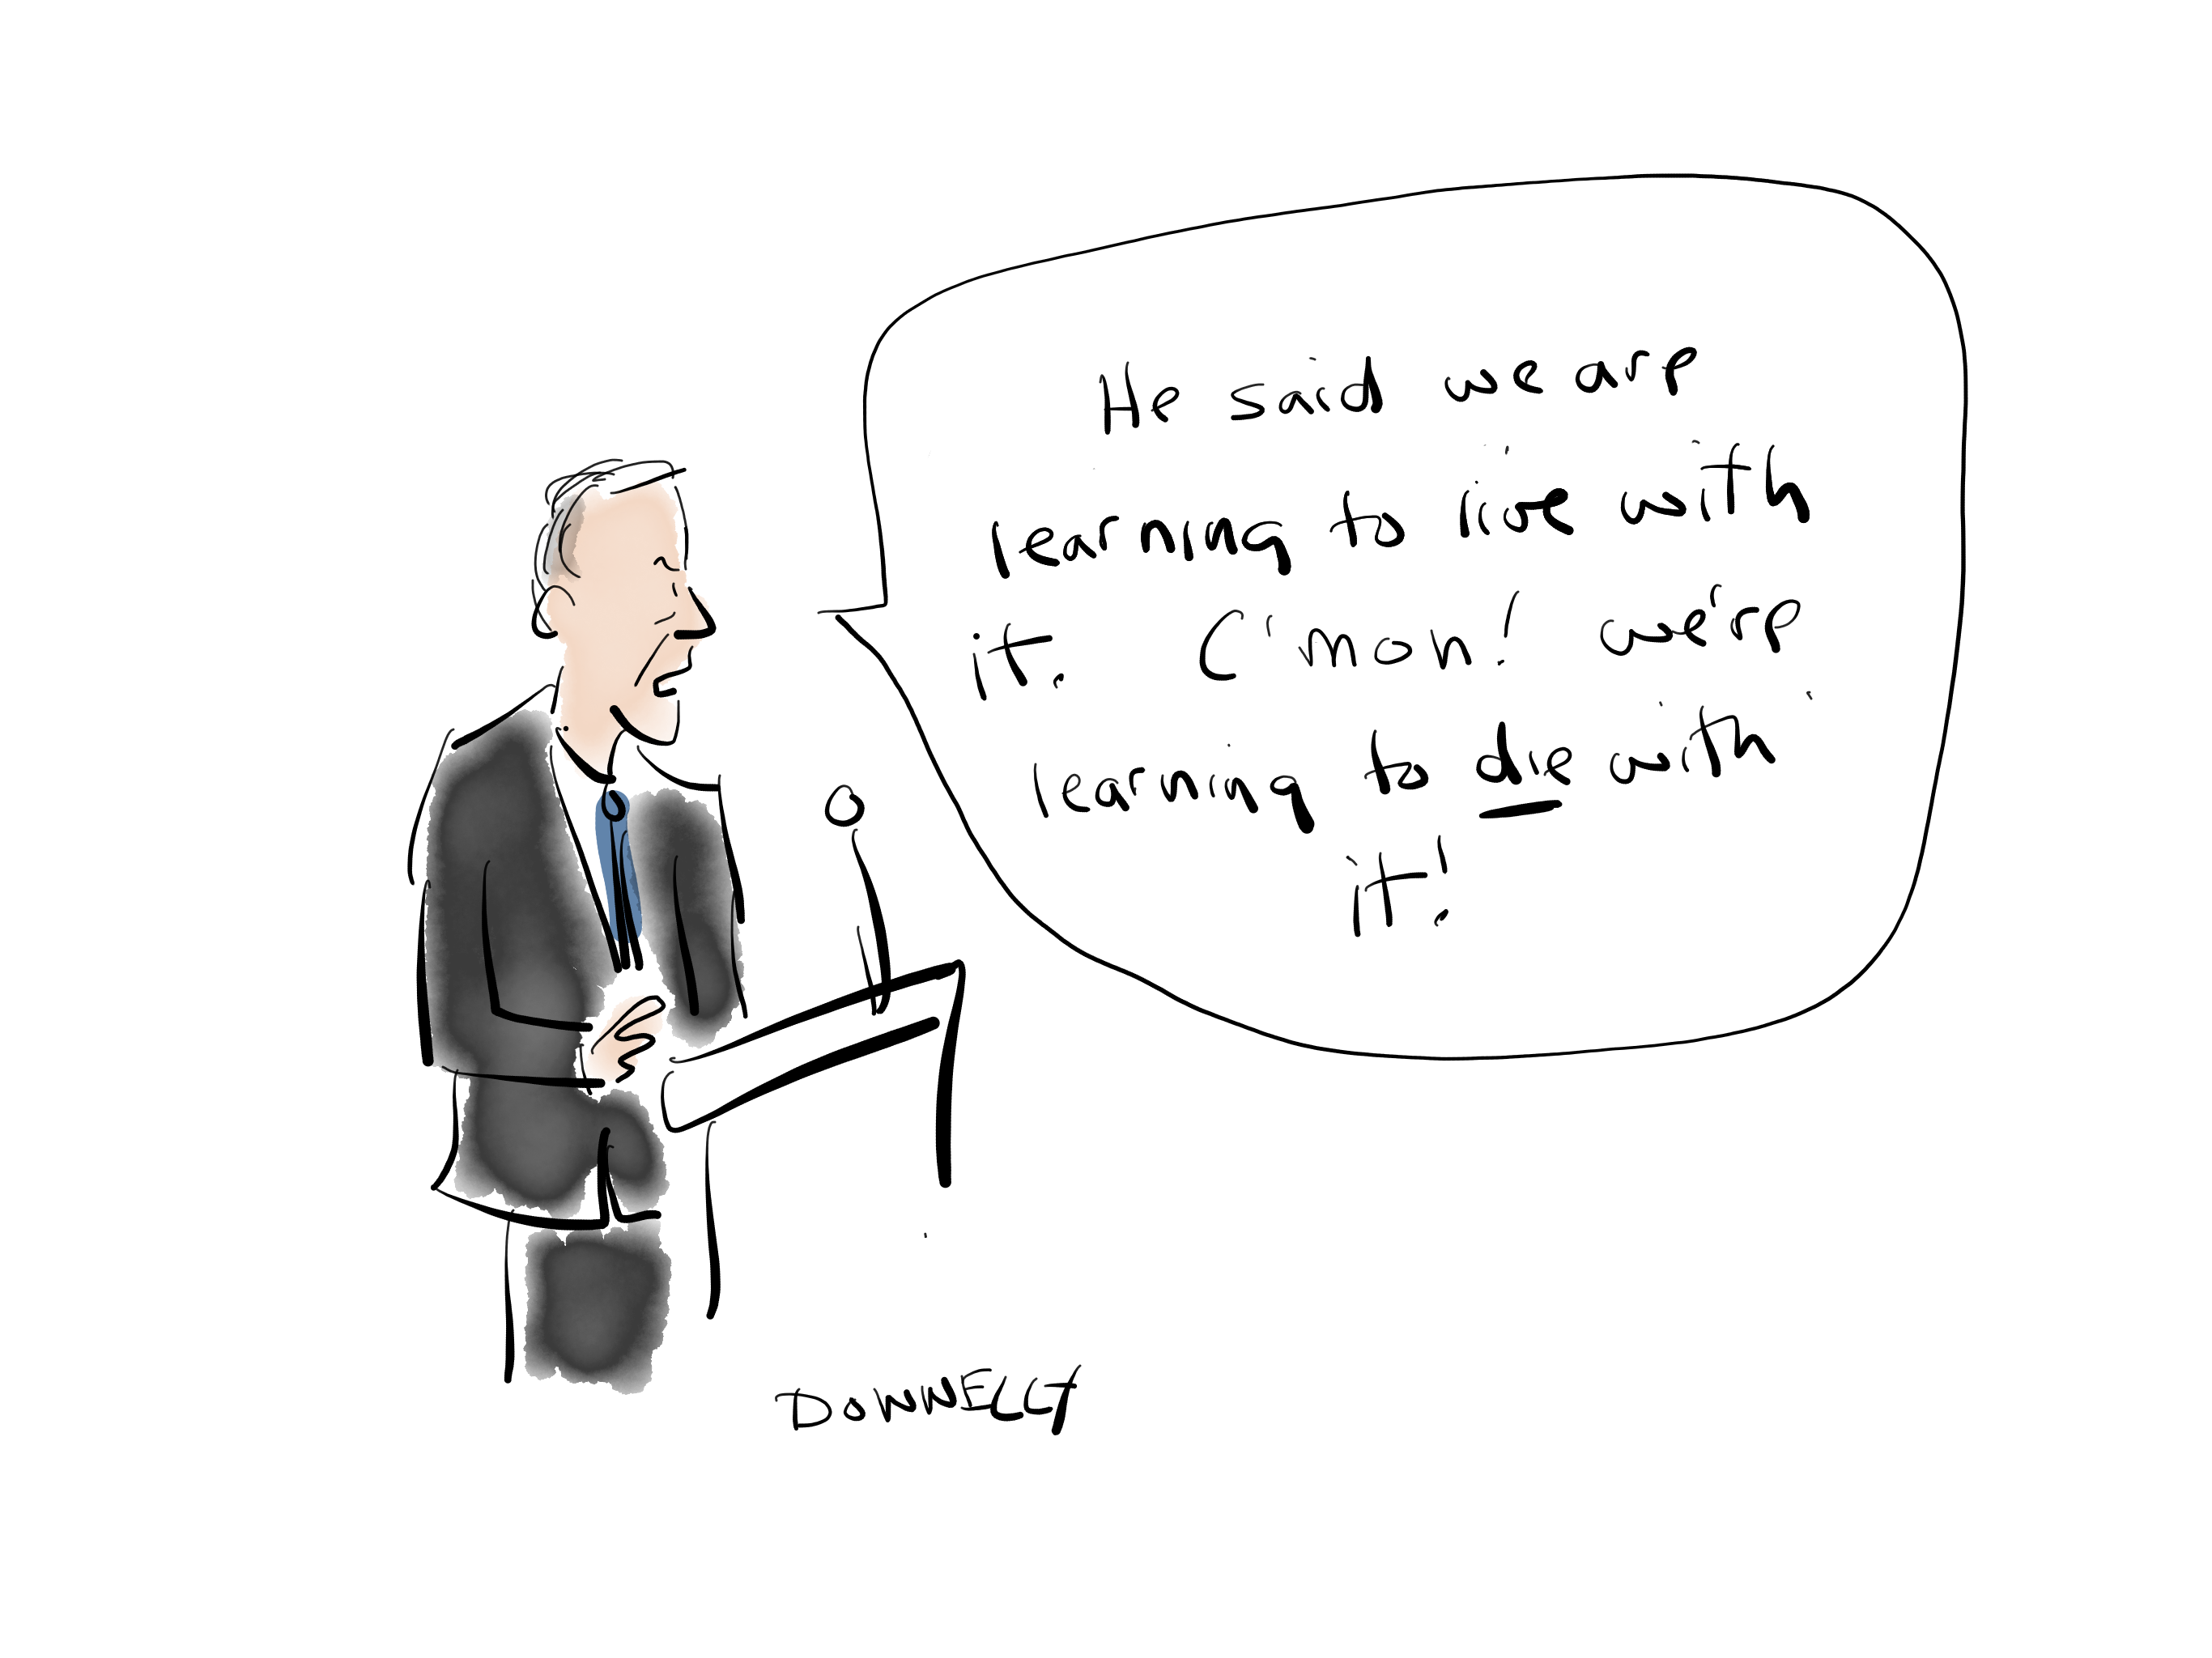 He said we are
learning to live with
it. C'mon! we're
learning to die with
it!
DONNELLY